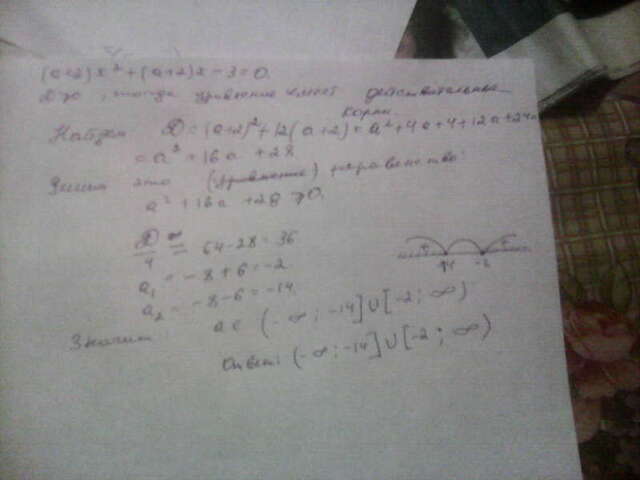 (a+2)x² + (a+2)x - 3 = 0.
D≥0, тогда уравнение имеет действительные корни.
Найдем D = (a+2)² + 12(a+2) = a² + 4a + 4 + 12a + 24 =
= a² + 16a + 28
это (уравнение) неравенство:
a² + 16a + 28 ≥ 0.
D/4 = 64 - 28 = 36
a₁ = -8 + 6 = -2
a₂ = -8 - 6 = -14
+ + -2
Значит a ∈ (-∞; -14] ∪ [-2; ∞)
Ответ: (-∞; -14] ∪ [-2; ∞)